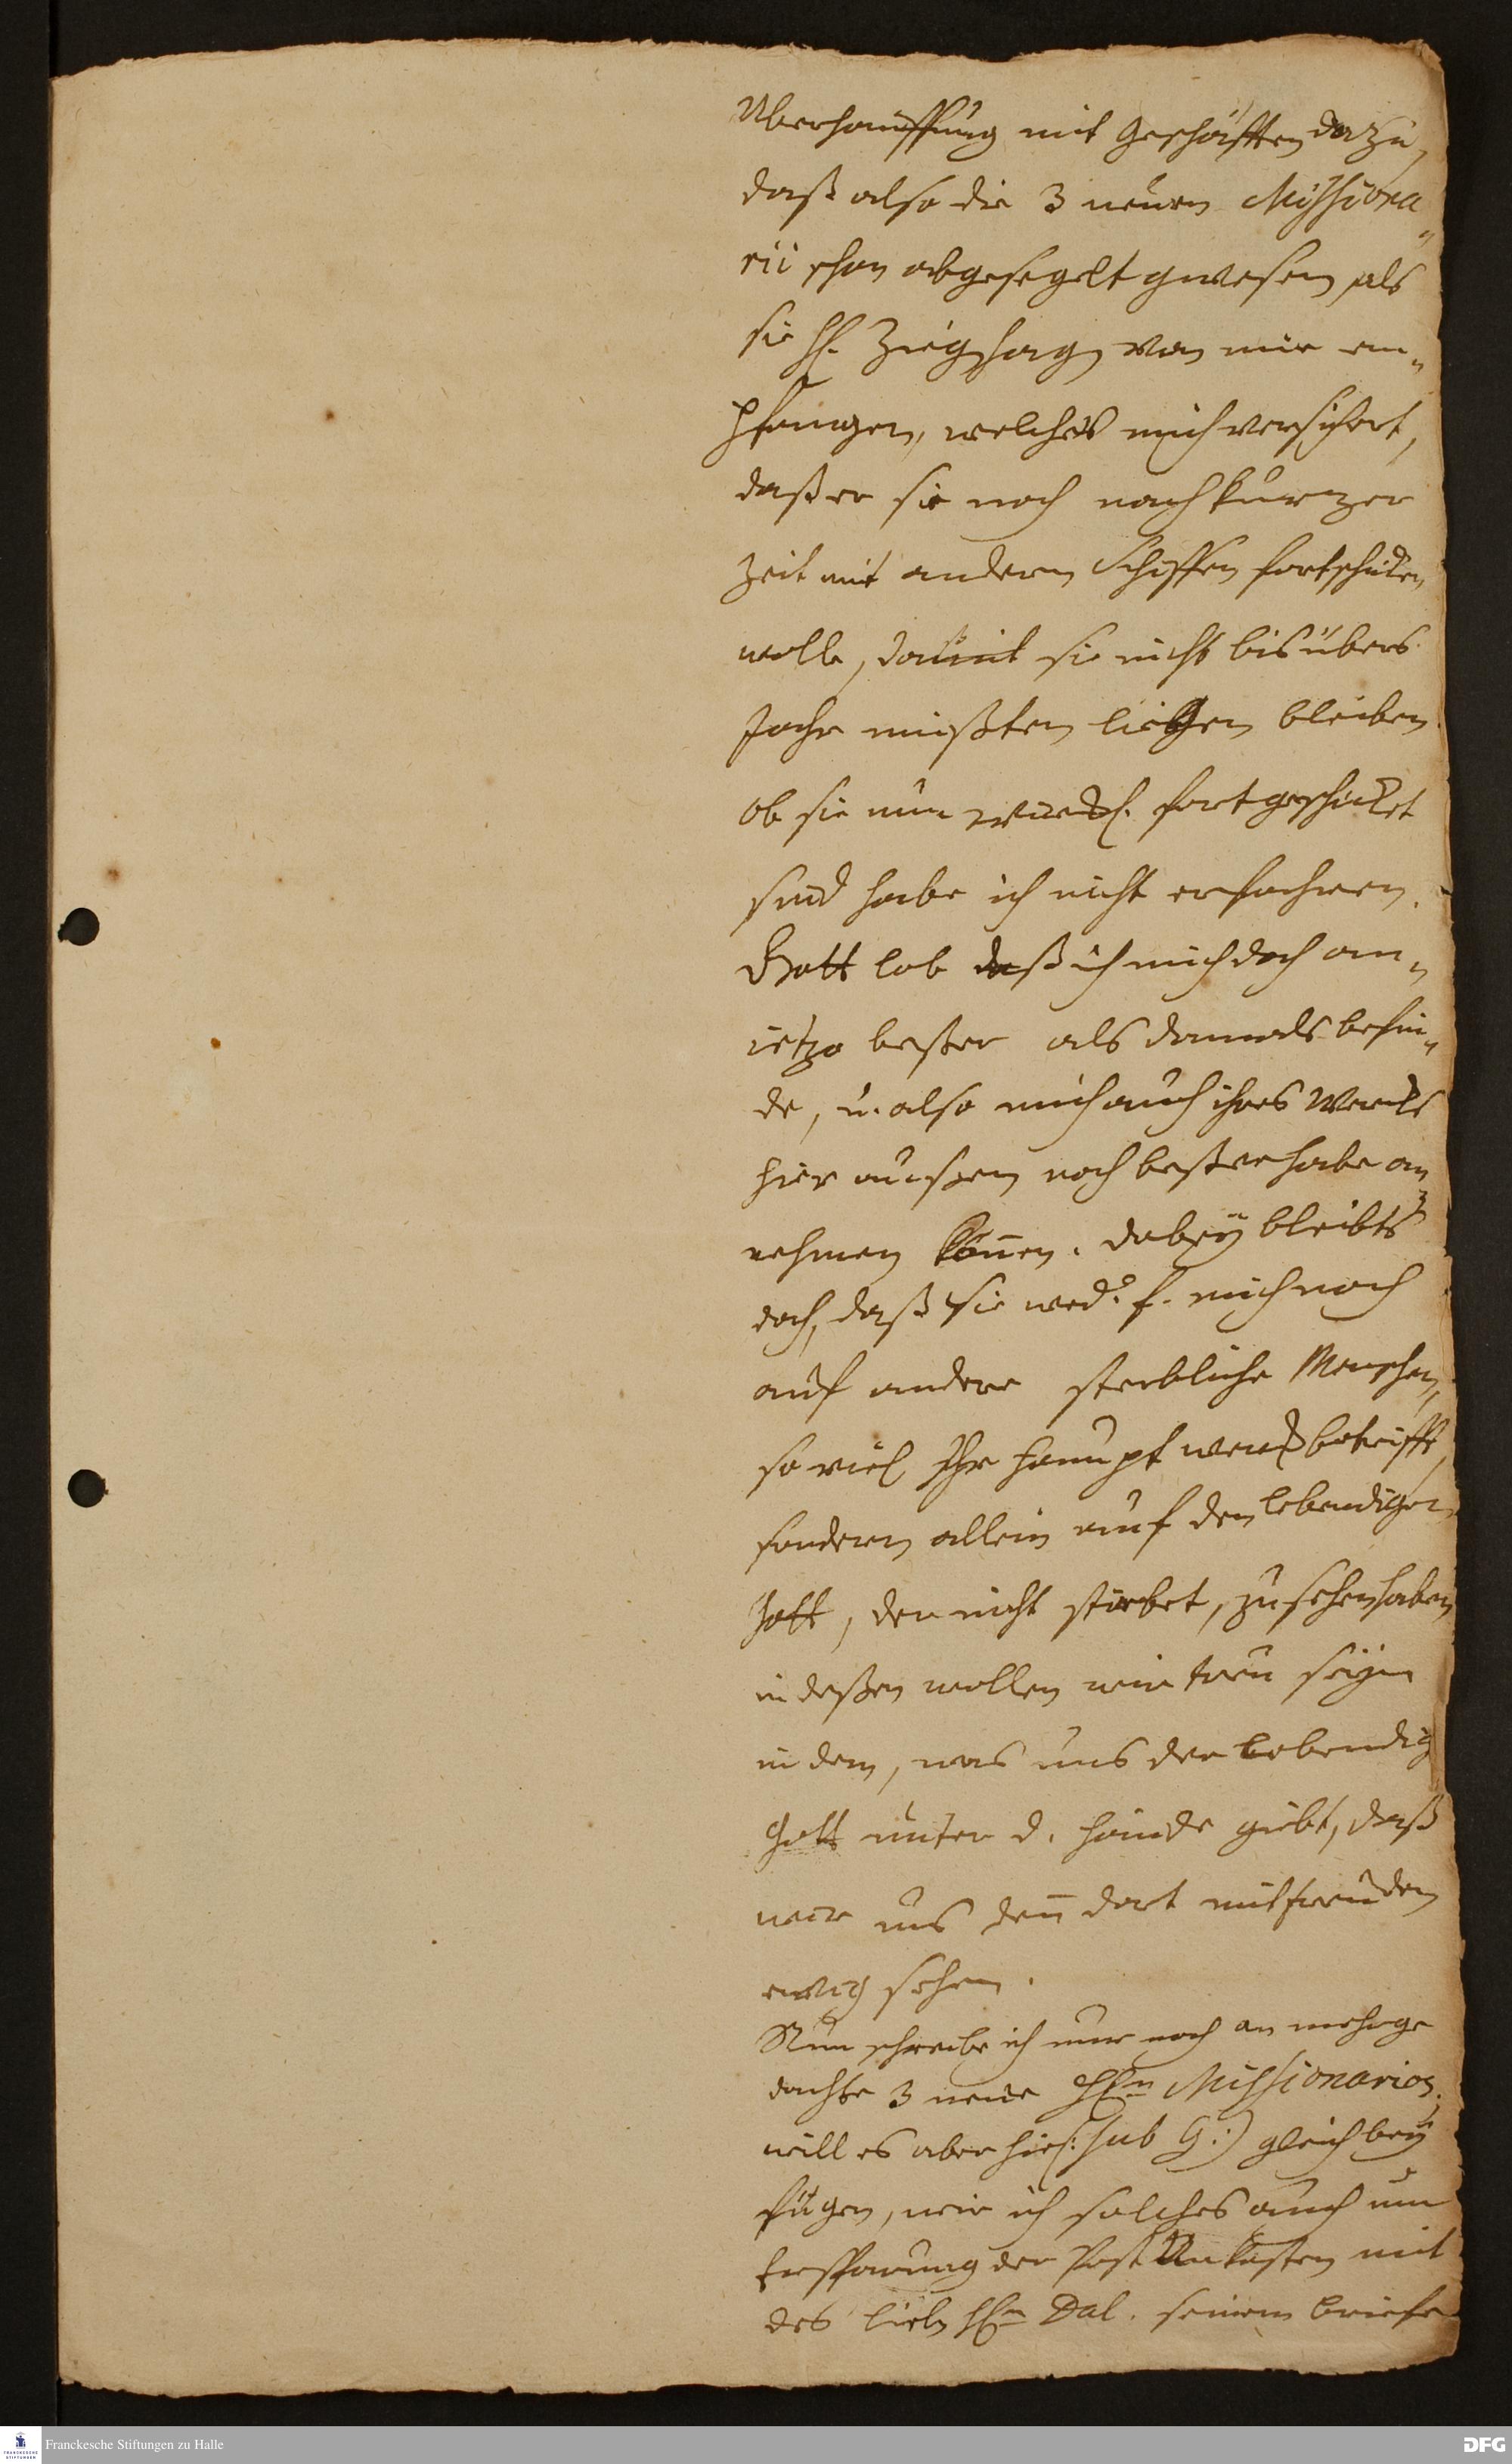 Uberhäuffung mit Geschäfften dazu,
daß also die 3 neuen Missiona„
rii schon abgesegelt gewesen, als
sie H. Ziegenhagen von mir em„
pfangen, welches mich versichert,
daß er sie noch nach kurzer
Zeit mit andern Schiffen fortschicken
wolle, damit sie nicht bis übers
Jahr müßten liegen bleiben.
ob sie nun würckl. fortgeschicket
sind habe ich nicht erfahren.
Gott lob daß ich mich doch an„
ietzo beßer als damals befin„
de, u. also mich auch ihres Wercks
hier aussen noch beßer habe an
nehmen können. Dabey bleibts
doch, daß sie wed. f. mich noch
auf andere sterbliche Menschen,
so viel Ihr Hauptwerck betrifft,
sondern allein auf den lebendigen
Gott, der nicht stirbet, zu sehen haben
indeßen wollen wir treu seyn
in dem, was uns der lebendig
Gott unter d. Hände giebt, daß
wir uns den dort mit freuden
ewig sehen.
Nun schreibe ich nur noch an mehrge
dachte 3 neue HEn Missionarios.
will es aber hie (: sub G :) gleich bey
fügen, wie ich solches auch um
Ersparung der Post Unkosten mit
des lieben HEn Dal. seinem briefe
Franckesche Stiftungen zu Halle
DFG